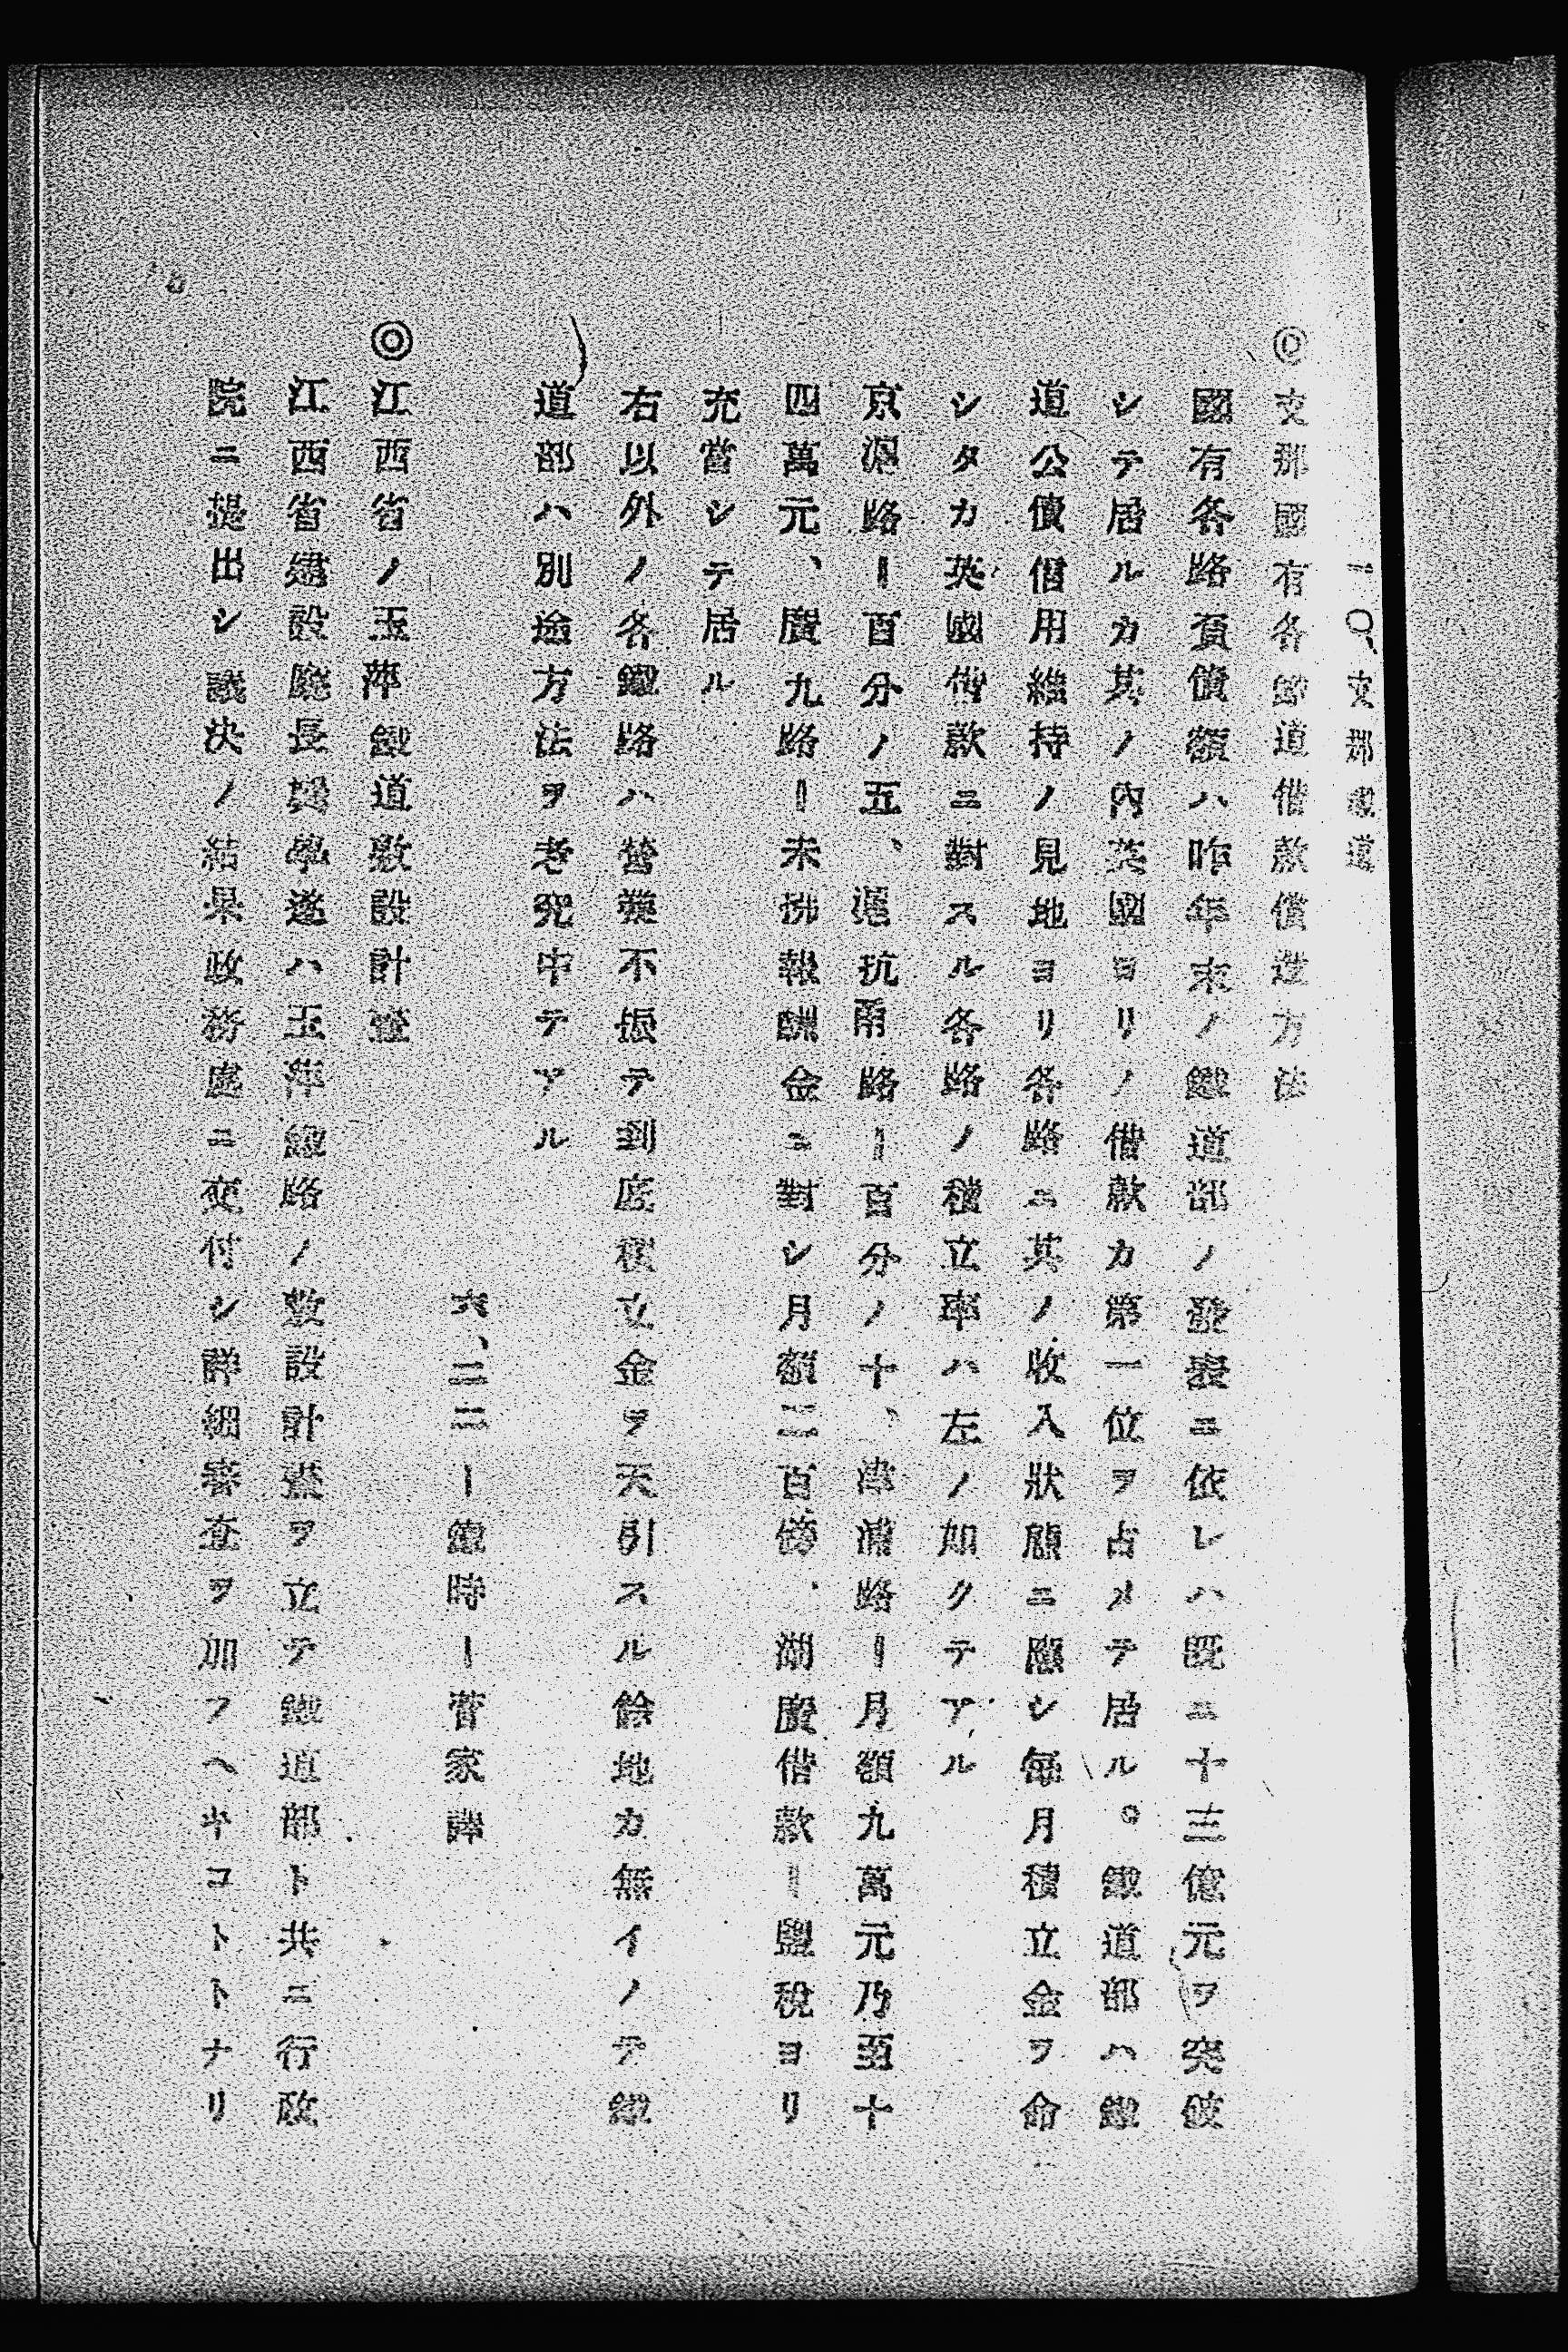 一〇、支那鐵道
◎支那國有各鐵道借款償還方法
國有各路負債額ハ昨年末ノ鐵道部ノ發表ニ依レハ既ニ十三億元ヲ突破
シテ居ルカ其ノ内英國ヨリノ借款カ第一位ヲ占メテ居ル。鐵道部ハ鐵
道公債信用維持ノ見地ヨリ各路ニ其ノ收入狀態ニ應シ每月積立金ヲ命
シタカ英國借款ニ對スル各路ノ積立率ハ左ノ如クテアル
京滬路ー百分ノ五、滬杭甬路ー百分ノ十、津浦路ー月額九萬元乃至十
四萬元、廣九路ー未拂報酬金ニ對シ月額三百磅、湖廣借款ー鹽稅ヨリ
充當シテ居ル
右以外ノ各鐵路ハ營業不振テ到底積立金ヲ天引スル餘地カ無イノテ鐵
道部ハ別途方法ヲ考究中テアル
六、二二ー鐵時ー菅家譯
◎江西省ノ玉萍鐵道敷設計畫
江西省建設廳長龔學遂ハ玉萍鐵路ノ敷設計畫ヲ立テ鐵道部ト共ニ行政
院ニ提出シ議决ノ結果政務處ニ交付シ詳細審査ヲ加フヘキコトトナリ